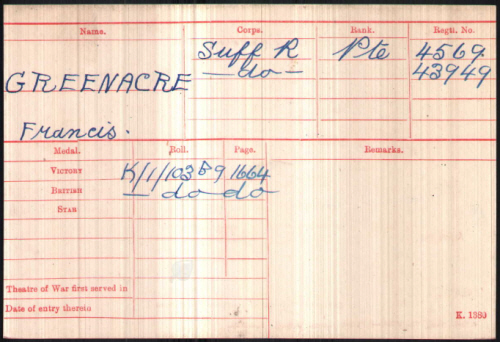 Name. Corps. Rank. Regtl. No.
Suff R Pte 4569
— do — 43949
GREENACRE
Francis.
Medal. Roll. Page. Remarks.
Victory K/1/103 B9 1664
British — do do
Star
Theatre of War first served in
Date of entry therein
K. 1380